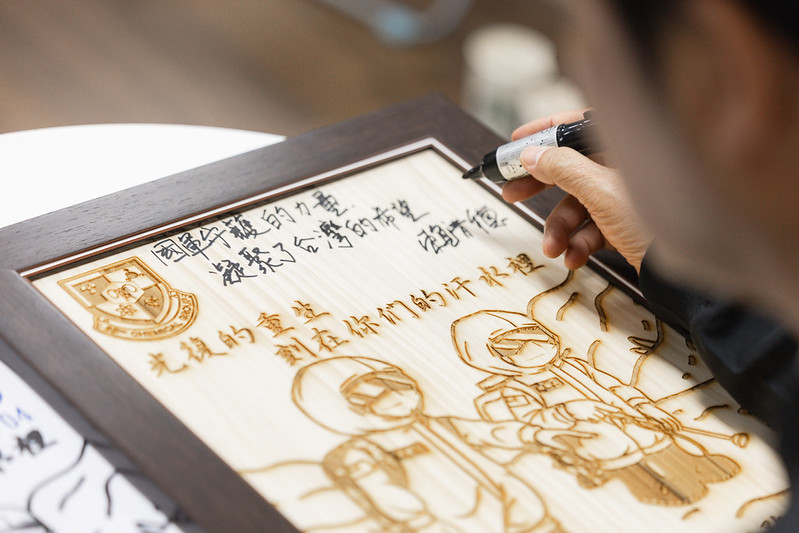 國軍守護的力量
凝聚了台灣的希望
賴清德
光復的重生
刻在你們的汗水裡
CHEMICAL
04
裡